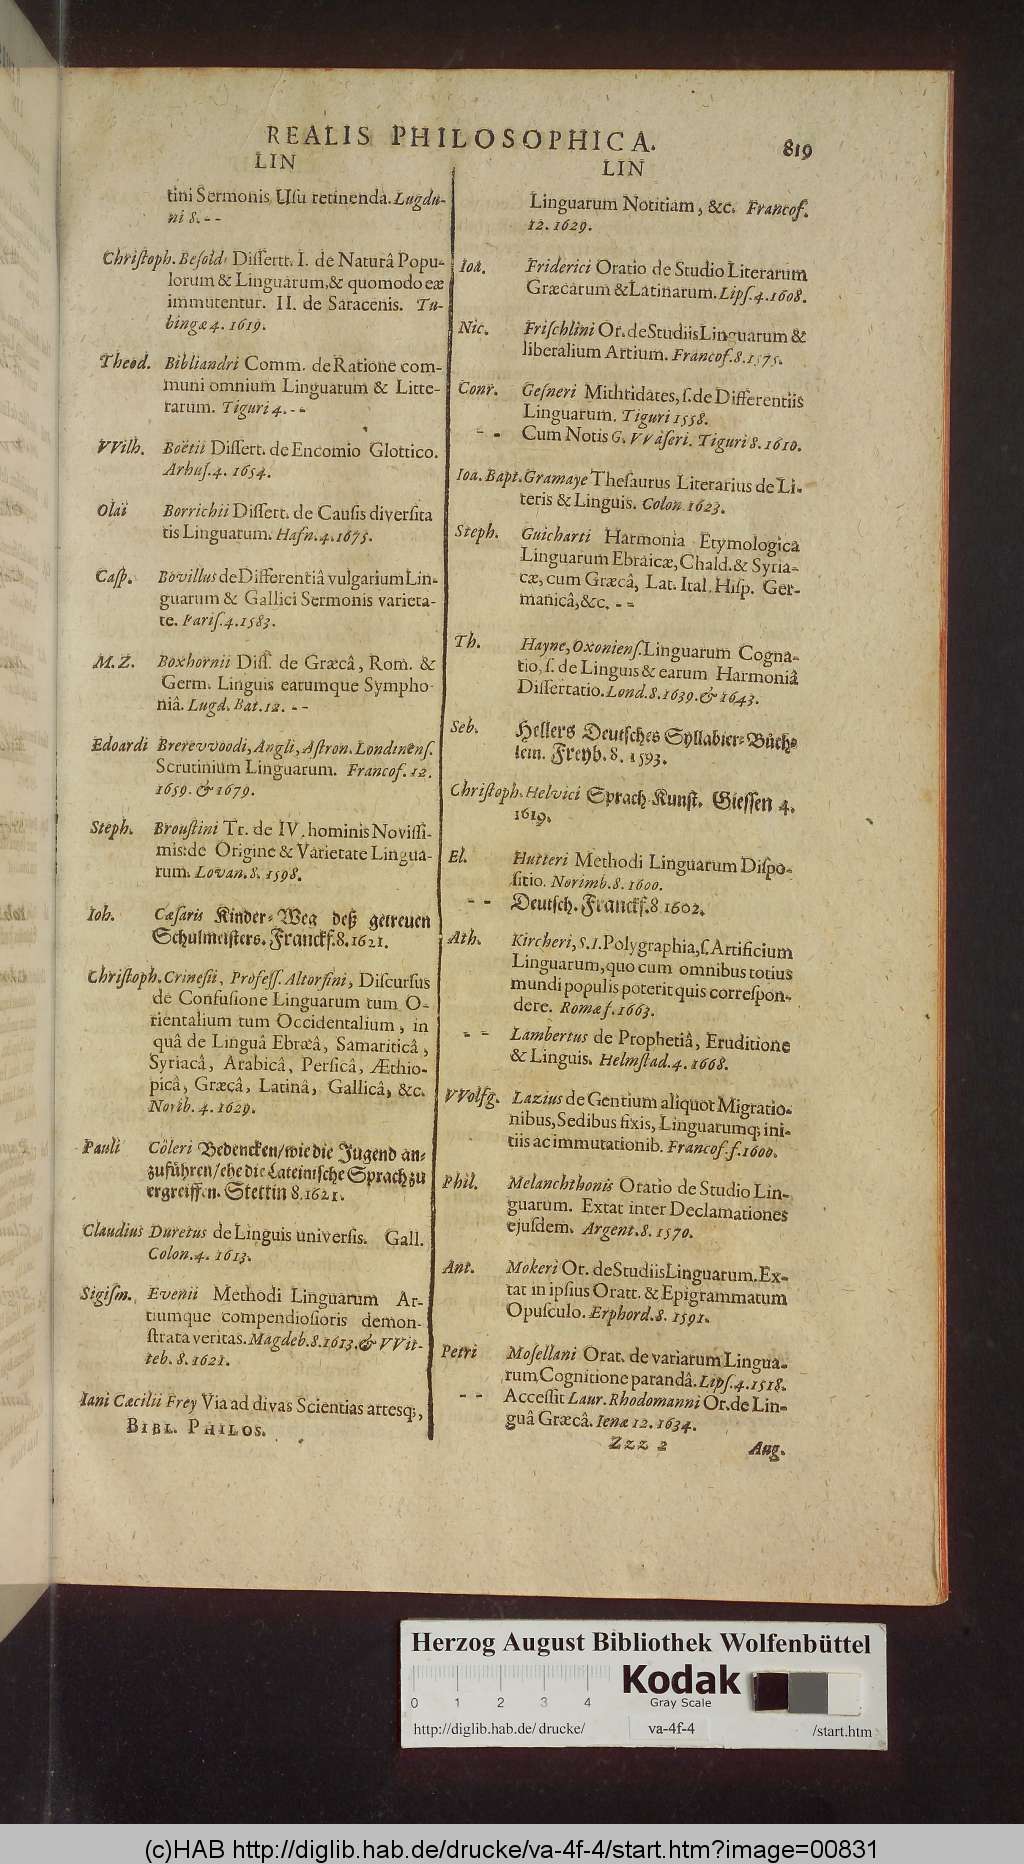 REALIS PHILOSOPHICA.
819
LIN
tini Sermonis Usu retinenda. Lugdu-
ni 8. - -
Chriſtoph. Beſold. Diſſertt. I. de Naturâ Popu-
lorum & Linguarum, & quomodo eæ
immutentur. II. de Saracenis. Tu-
bingæ 4. 1619.
Theod. Bibliandri Comm. de Ratione com-
muni omnium Linguarum & Litte-
rarum. Tiguri 4. - -
VVilh. Boëtii Diſſert. de Encomio Glottico.
Arhuſ. 4. 1654.
Olai Borrichii Diſſert. de Cauſis diverſita
tis Linguarum. Hafn. 4. 1675.
Caſp. Bovillus de Differentiâ vulgarium Lin-
guarum & Gallici Sermonis varieta-
te. Pariſ. 4. 1583.
M. Z. Boxhornii Diſſ. de Græcâ, Rom. &
Germ. Linguis earumque Sympho-
niâ. Lugd. Bat. 12. - -
Edoardi Brerevvoodi, Angli, Aſtron. Londinenſ.
Scrutinium Linguarum. Francof. 12.
1659. & 1679.
Steph. Brouſtini Tr. de IV. hominis Noviſſi-
mis: de Origine & Varietate Lingua-
rum. Lovan. 8. 1598.
Ioh. Cæſaris Kinder-Weg deß getreuen
Schulmeiſters. Franckf. 8. 1621.
Chriſtoph. Crineſii, Profeſſ. Altorfini, Diſcurſus
de Confuſione Linguarum tum O-
rientalium tum Occidentalium, in
quâ de Linguâ Ebræâ, Samariticâ,
Syriacâ, Arabicâ, Perſicâ, Æthio-
picâ, Græcâ, Latinâ, Gallicâ, &c.
Norib. 4. 1629.
Pauli Cöleri Bedencken/wie die Jugend an-
zuführen/ehe die Lateiniſche Sprach zu
ergreiffen. Stettin 8. 1621.
Claudius Duretus de Linguis univerſis. Gall.
Colon. 4. 1613.
Sigiſm. Evenii Methodi Linguarum Ar-
tiumque compendioſioris demon-
ſtrata veritas. Magdeb. 8. 1613. & VVit-
teb. 8. 1621.
Iani Cæcilii Frey Via ad divas Scientias artesq;,
BIBL. PHILOS.
LIN
Linguarum Notitiam, &c. Francof.
12. 1629.
Ioa. Friderici Oratio de Studio Literarum
Græcarum & Latinarum. Lipſ. 4. 1608.
Nic. Friſchlini Or. de Studiis Linguarum &
liberalium Artium. Francof. 8. 1575.
Conr. Geſneri Mithridates, ſ. de Differentiis
Linguarum. Tiguri 1558.
- - Cum Notis G. VVaſeri. Tiguri 8. 1610.
Ioa. Bapt. Gramaye Theſaurus Literarius de Li-
teris & Linguis. Colon 1623.
Steph. Guicharti Harmonia Etymologica
Linguarum Ebraicæ, Chald. & Syria-
cæ, cum Græcâ, Lat. Ital. Hiſp. Ger-
manicâ, &c. - -
Th. Hayne, Oxonienſ. Linguarum Cogna-
tio, ſ. de Linguis & earum Harmoniâ
Diſſertatio. Lond. 8. 1639. & 1643.
Seb. Hellers Deutſches Syllabier-Büch-
lein. Freyb. 8. 1593.
Chriſtoph. Helvici Sprach-Kunſt. Gieſſen 4.
1619.
El. Hutteri Methodi Linguarum Diſpo-
ſitio. Norimb. 8. 1600.
- - Deutſch. Franckf. 8. 1602.
Ath. Kircheri, S. I. Polygraphia, ſ. Artificium
Linguarum, quo cum omnibus totius
mundi populis poterit quis correſpon-
dere. Romæ f. 1663.
- - Lambertus de Prophetiâ, Eruditione
& Linguis. Helmſtad. 4. 1668.
VVolfg. Lazius de Gentium aliquot Migratio-
nibus, Sedibus fixis, Linguarumq; ini-
tiis ac immutationib. Francof. f. 1600.
Phil. Melanchthonis Oratio de Studio Lin-
guarum. Extat inter Declamationes
ejuſdem. Argent. 8. 1570.
Ant. Mokeri Or. de Studiis Linguarum. Ex-
tat in ipſius Oratt. & Epigrammatum
Opuſculo. Erphord. 8. 1591.
Petri Moſellani Orat. de variarum Lingua-
rum Cognitione parandâ. Lipſ. 4. 1518.
- - Acceſſit Laur. Rhodomanni Or. de Lin-
guâ Græcâ. Ienæ 12. 1634.
Zzz 2
Aug.
Herzog August Bibliothek Wolfenbüttel
Kodak
Gray Scale
0 1 2 3 4
http://diglib.hab.de/drucke/ va-4f-4 /start.htm
(c)HAB http://diglib.hab.de/drucke/va-4f-4/start.htm?image=00831